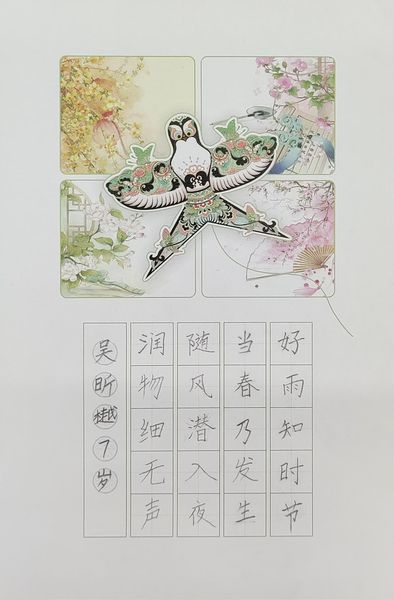 好雨知时节
当春乃发生
随风潜入夜
润物细无声
吴昕樾7岁